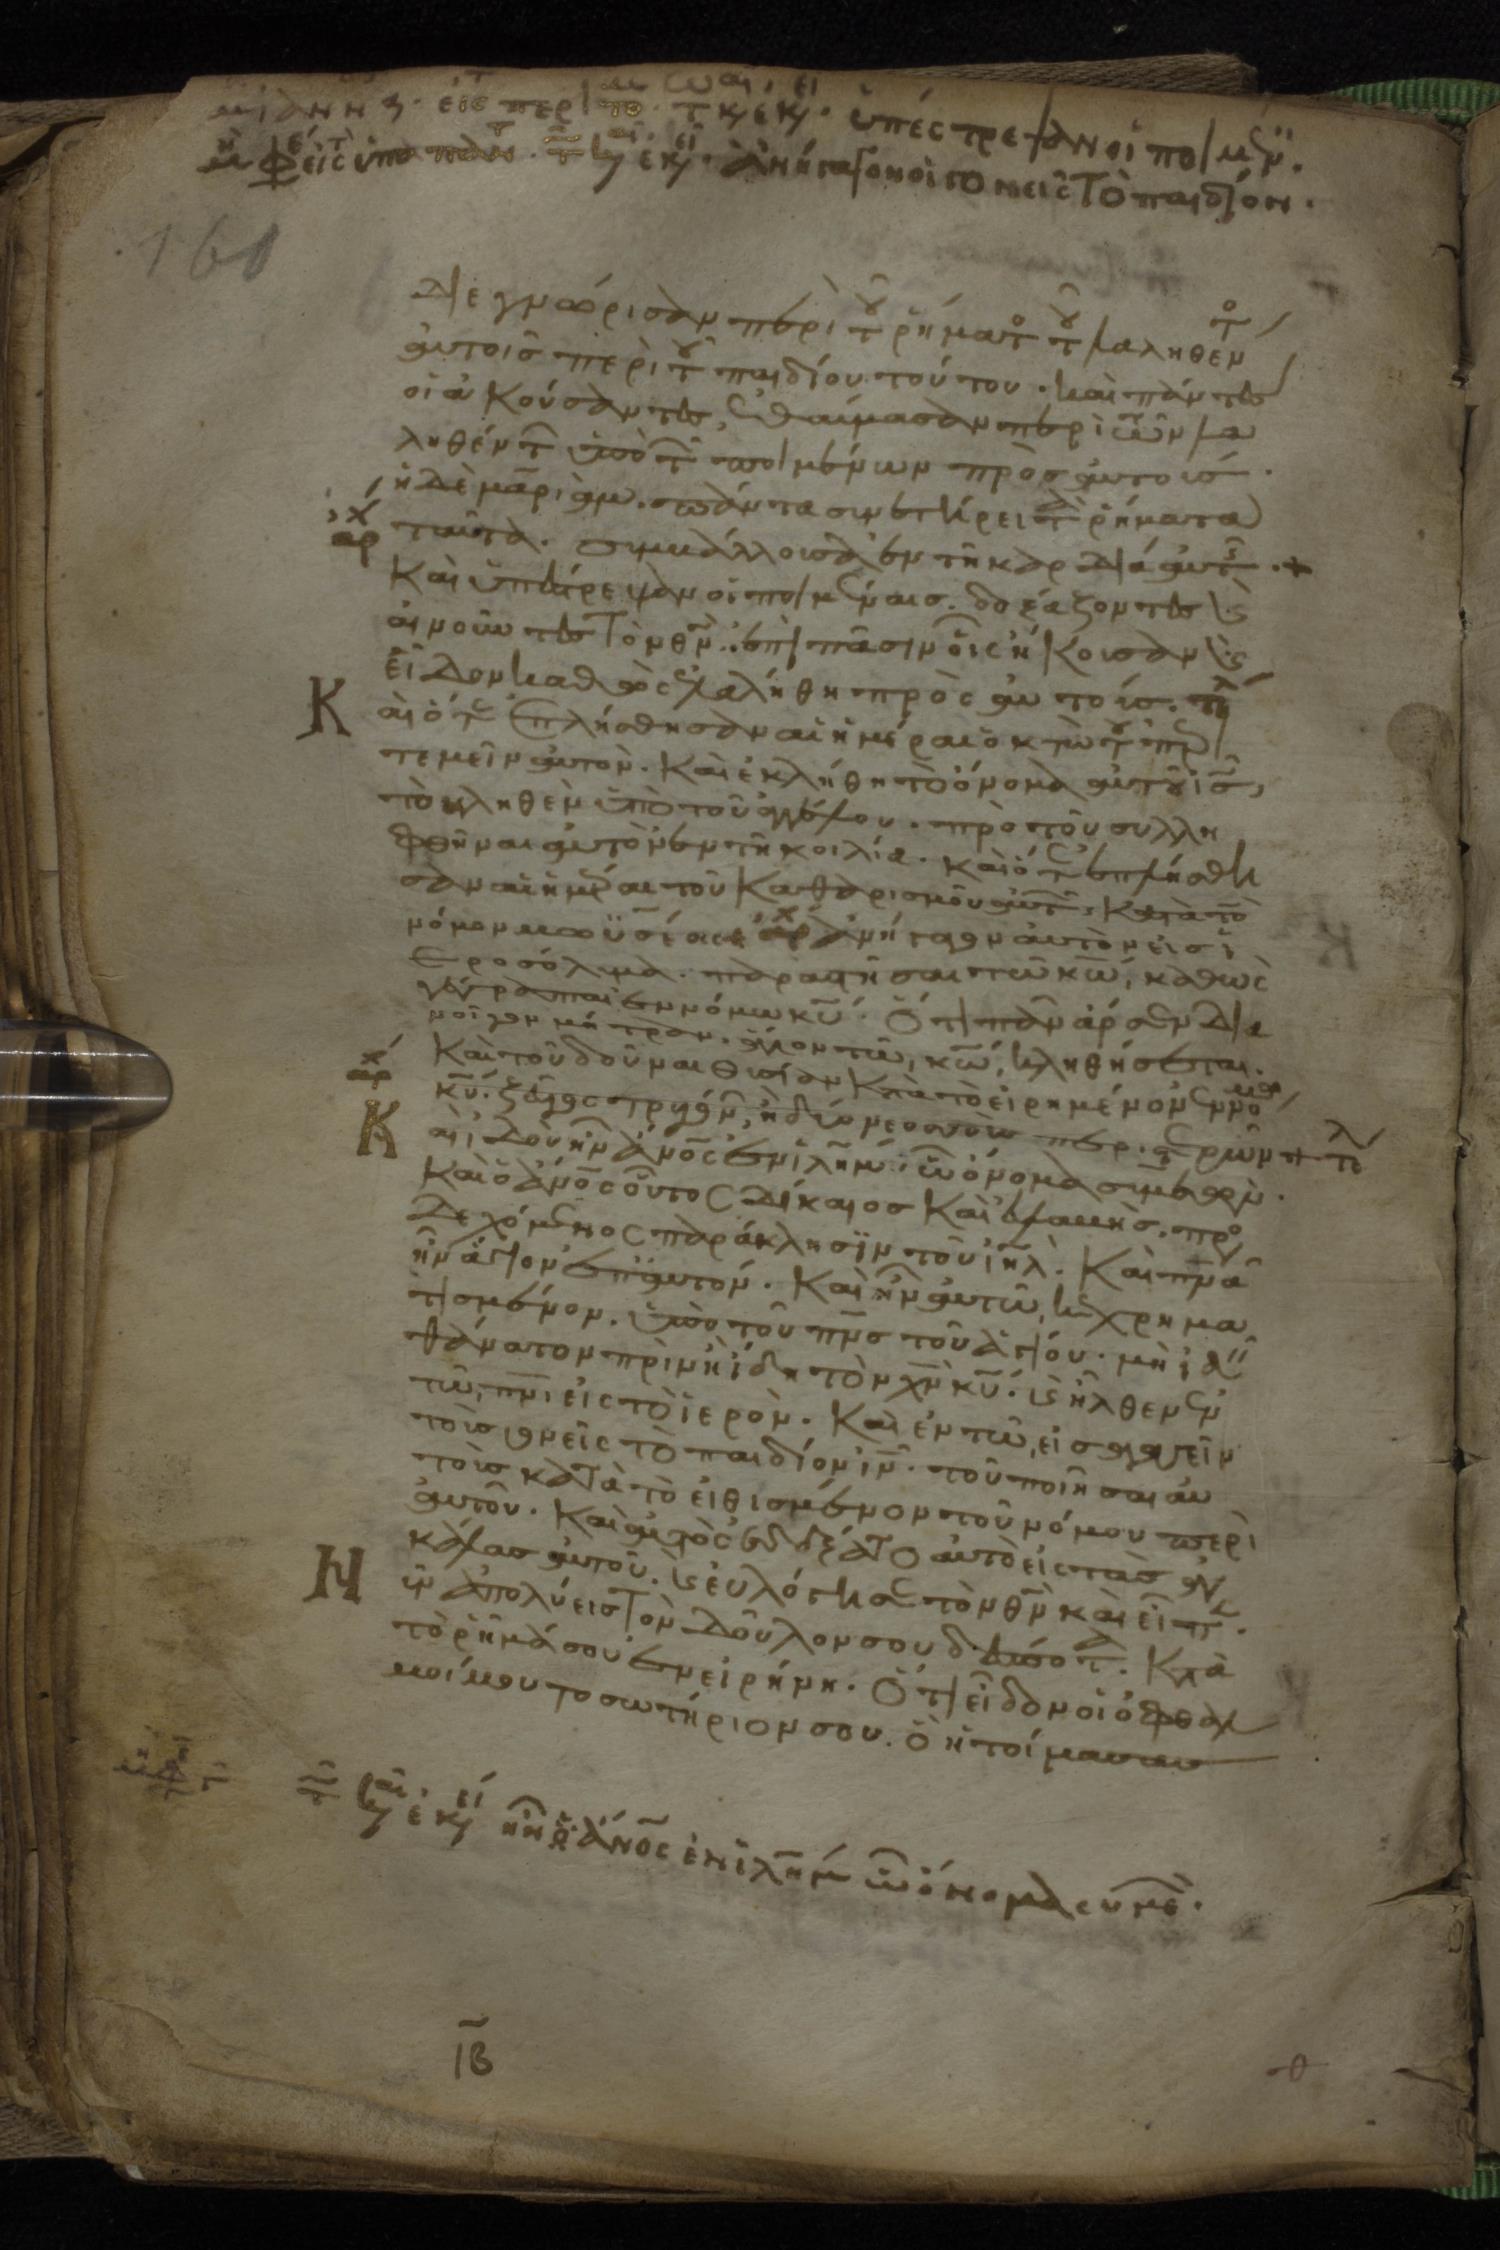 ὑπέστρεψαν οἱ ποιμέν
ἀνήγαγον οἱ γονεῖς τὸ παιδίον.
161
διεγνώρισαν περὶ τοῦ ῥήματος τοῦ λαληθέντος
αὐτοῖς περὶ τοῦ παιδίου τούτου. καὶ πάντες
οἱ ἀκούσαντες, ἐθαύμασαν περὶ τῶν λα
ληθέντων ὑπὸ τῶν ποιμένων πρὸς αὐτούς.
ἡ δὲ μαριὰμ. πάντα συνετήρει τὰ ῥήματα
ταῦτα. συμβάλλουσα ἐν τῇ καρδίᾳ αὐτῆς. +
Καὶ ὑπέστρεψαν οἱ ποιμένες. δοξάζοντες καὶ
αἰνοῦντες τὸν θν. ἐπὶ πᾶσιν οἷς ἤκουσαν καὶ
εἶδον καθὼς ἐλαλήθη πρὸς αὐτούς. τλ
Κ
αὶ ὅτε ἐπλήσθησαν αἱ ἡμέραι ὀκτὼ τοῦ περι
τεμεῖν αὐτόν. Καὶ ἐκλήθη τὸ ὄνομα αὐτοῦ ις,
τὸ κληθὲν ὑπὸ τοῦ ἀγγέλου. πρὸ τοῦ συλλη
φθῆναι αὐτὸν ἐν τῇ κοιλίᾳ. καὶ ὅτε ἐπλήσθη
σαν αἱ ἡμέραι τοῦ Καθαρισμοῦ αὐτῶν, Κατὰ τὸν
νόμον μωϋσέως ἀνήγαγον αὐτὸν εἰς ἱ
εροσόλυμα. παραστῆσαι τῶ κω, καθὼς
γέγραπται ἐν νόμω κυ. Ὅτι πᾶν ἄρσεν δια
νοῖγον μήτραν. ἅγιον τῶ, κω, κληθήσεται.
Καὶ τοῦ δοῦναι θυσίαν Κατὰ τὸ εἰρημένον ἐν νόμω
κυ. ζεῦγος τρυγόν, ἢ δύο νεοσσοὺς περιστερῶν + τλ
Κ
αὶ ἰδοὺ ἦν ἄνος ἐν ιλημ. ὧ ὄνομα συμεών.
Καὶ ὁ ἄνος οὗτος δίκαιος Καὶ εὐλαβής. προσ
δεχόμενος παράκλησιν τοῦ ιηλ. Καὶ πνα
ἦν ἅγιον ἐπ' αὐτόν. Καὶ ἦν αὐτῶ, κεχρημα
τισμένον. ὑπὸ τοῦ πνς τοῦ ἁγίου. μὴ ἰδεῖν
θάνατον πρὶν ἢ ἴδη τὸν χν κυ. καὶ ἦλθεν ἐν
τῶ, πνι εἰς τὸ ἱερόν. Καὶ ἐν τῶ, εἰσαγαγεῖν
τοὺς γονεῖς τὸ παιδίον ιν. τοῦ ποιῆσαι αὐ
τοὺς κατὰ τὸ εἰθισμένον τοῦ νόμου περὶ
αὐτοῦ. Καὶ αὐτὸς ἐδέξατο αὐτὸ εἰς τὰς ἀγ
κάλας αὐτοῦ. καὶ εὐλόγησε τὸν θν καὶ εἶπε.
Ν
ῦν ἀπολύεις τὸν δοῦλον σου δέσποτα. Κατὰ
τὸ ῥῆμά σου ἐν εἰρήνη. Ὅτι εἶδον οἱ ὀφθαλ
μοί μου το σωτήριον σου. ὃ ἡτοίμασας
ἦν ἄνος ἐν ιλημ ὧ ὄνομα συμε.
ΙΒ